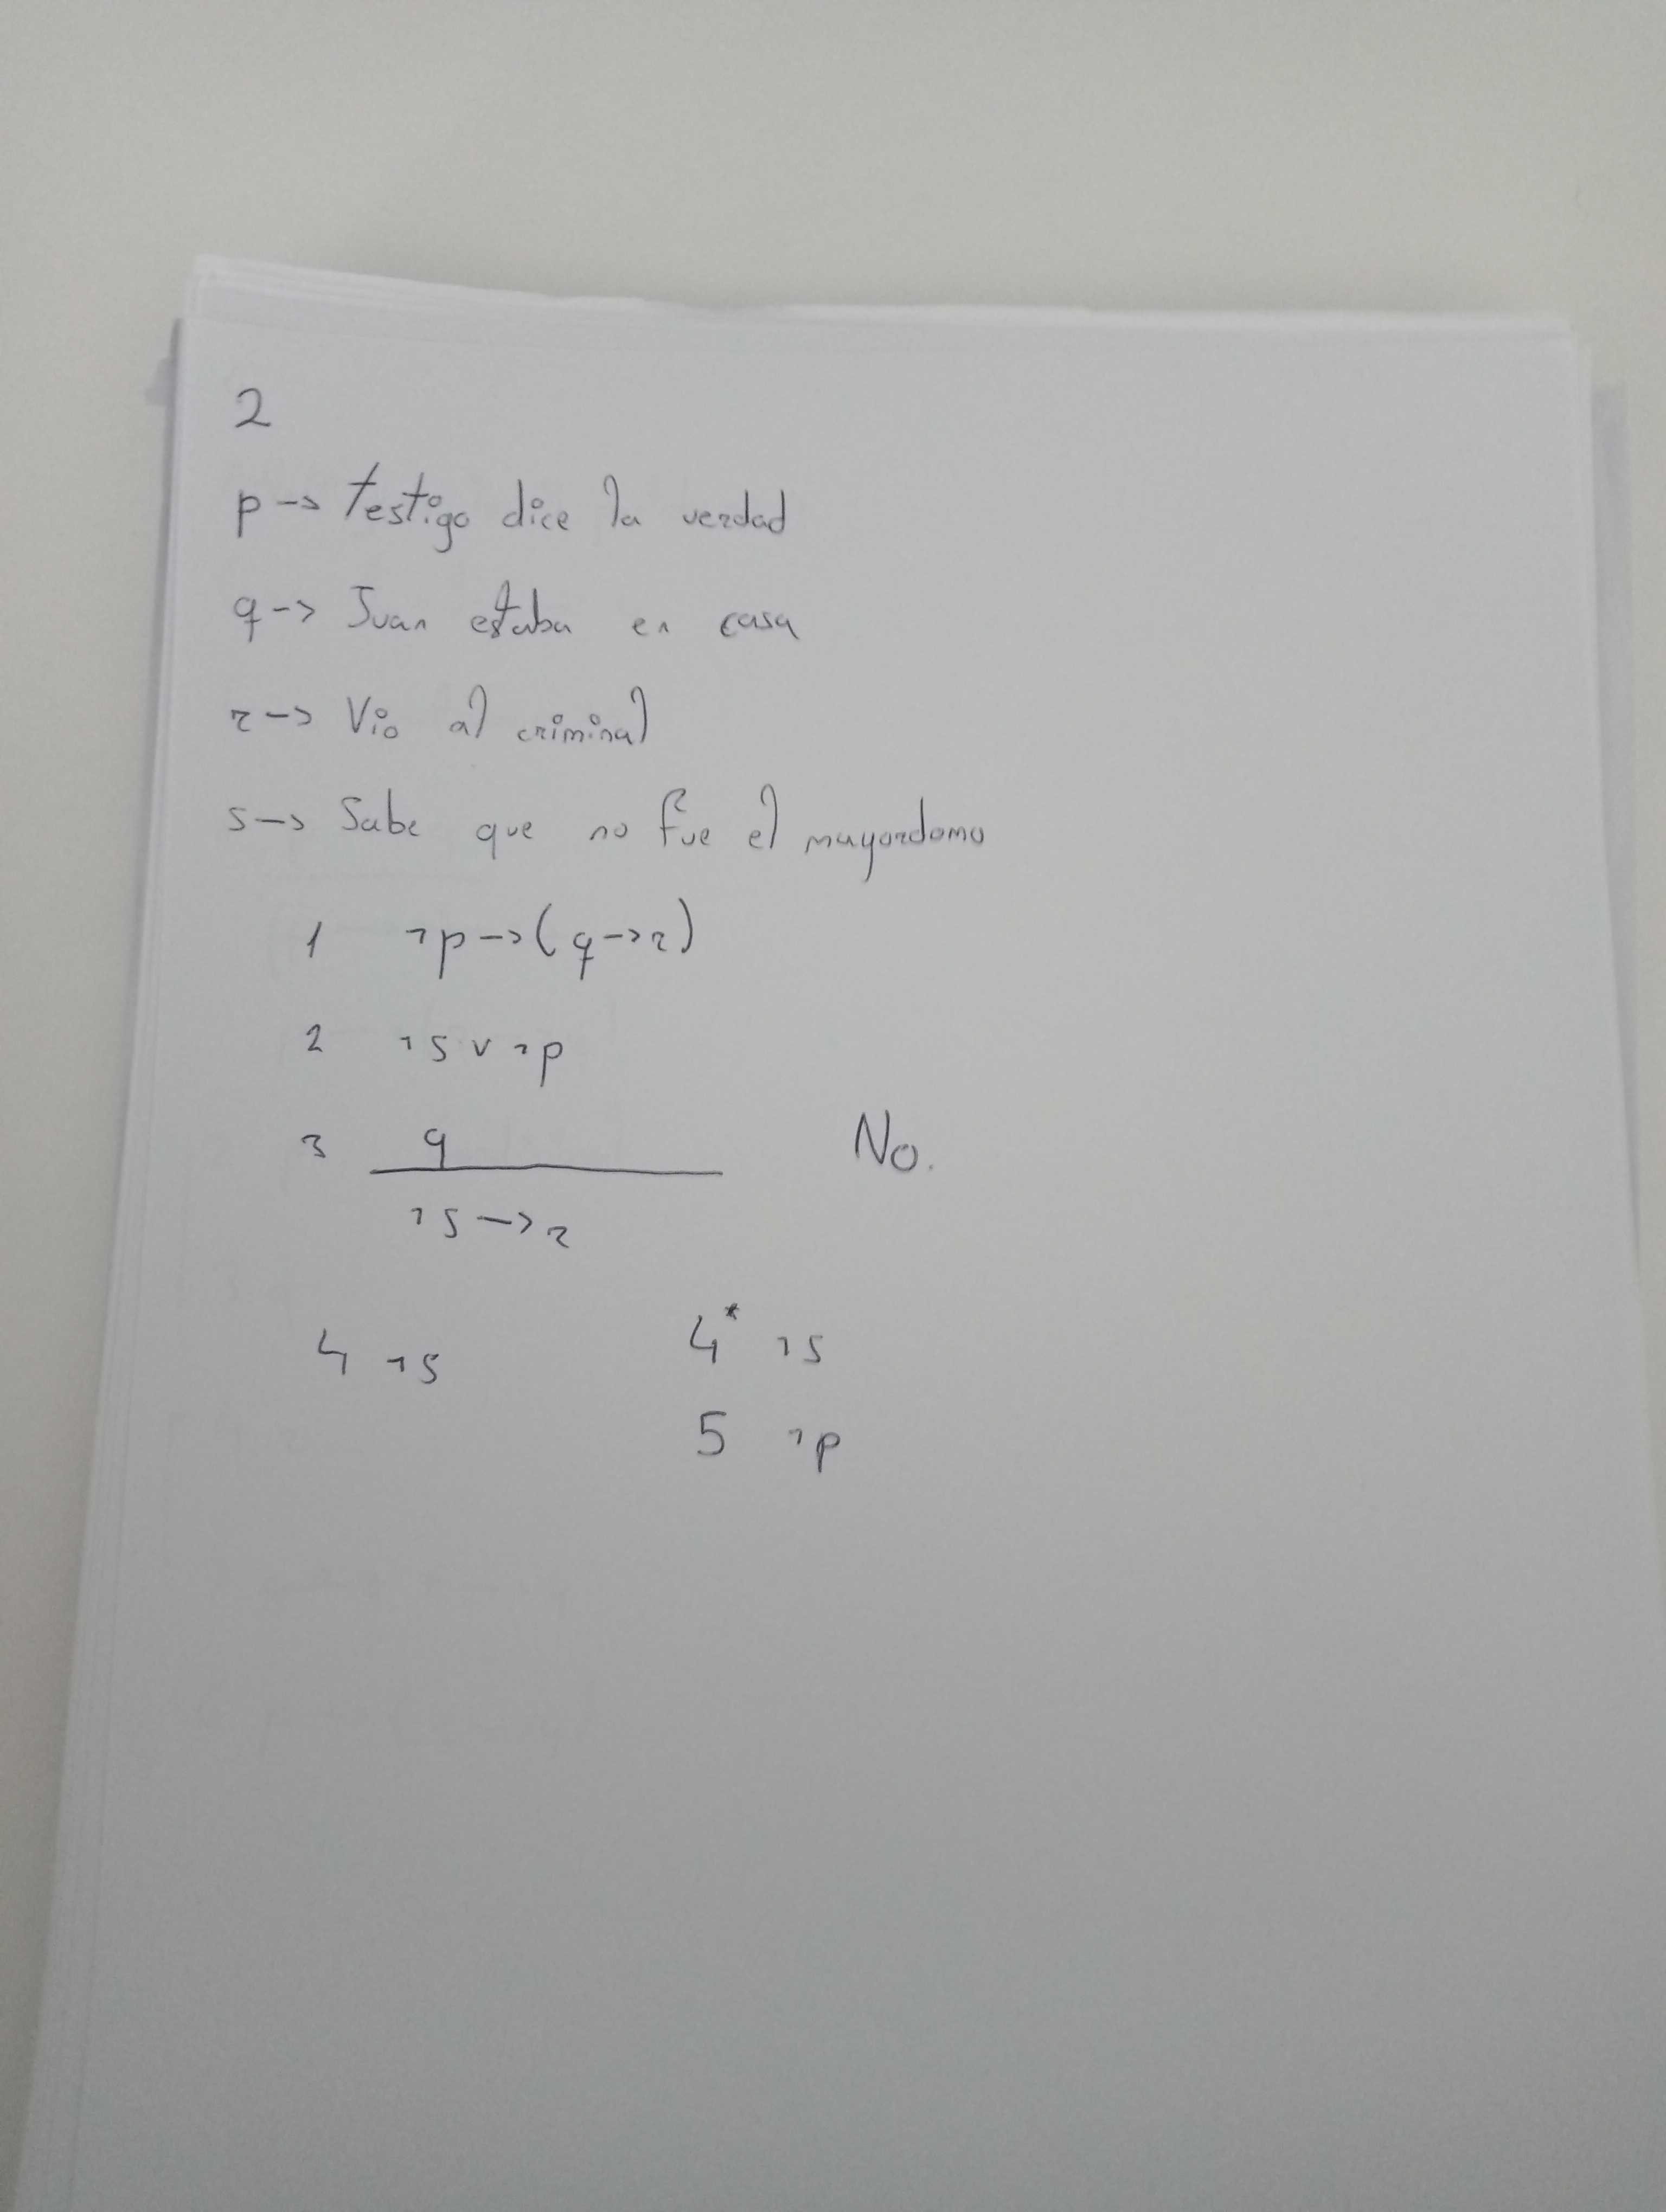 2
p -> testigo dice la verdad
q -> Juan estaba en casa
r -> Vio al criminal
s -> Sabe que no fue el mayordomo
1 ¬p -> (q -> r)
2 ¬s v ¬p
3 q No.
¬s -> r
4 ¬s 4* ¬s
5 ¬p